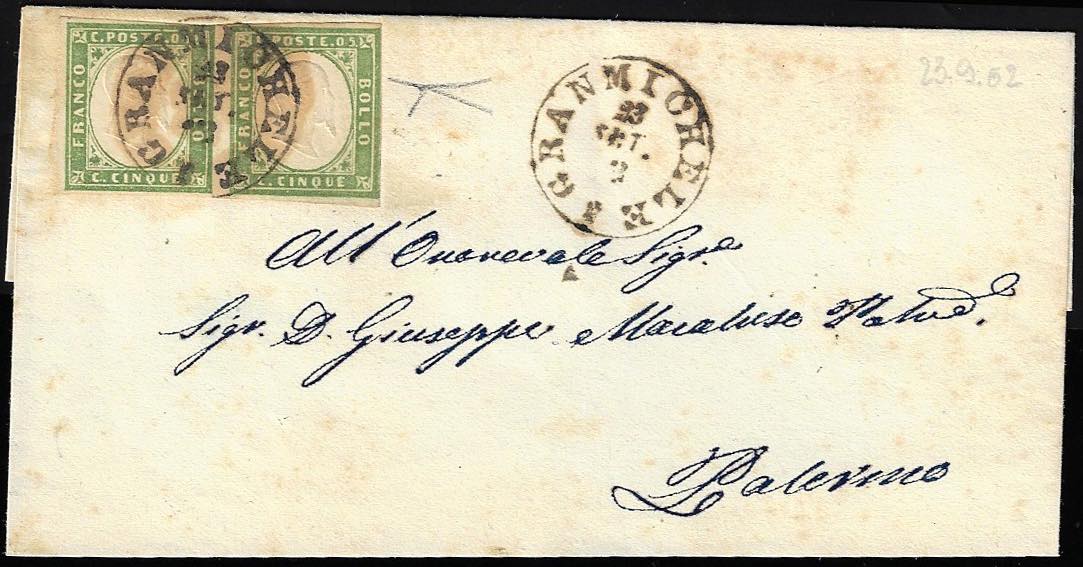 C. POSTE. 05
FRANCO
C. CINQUE
POSTE. 05
FRANCO
BOLLO
C. CINQUE
GRANMICHELE
SET.
GRANMICHELE
23
SET.
2
23.9.62
All' Onorevole Sigr.
Sigr. D. Giuseppe
Palermo